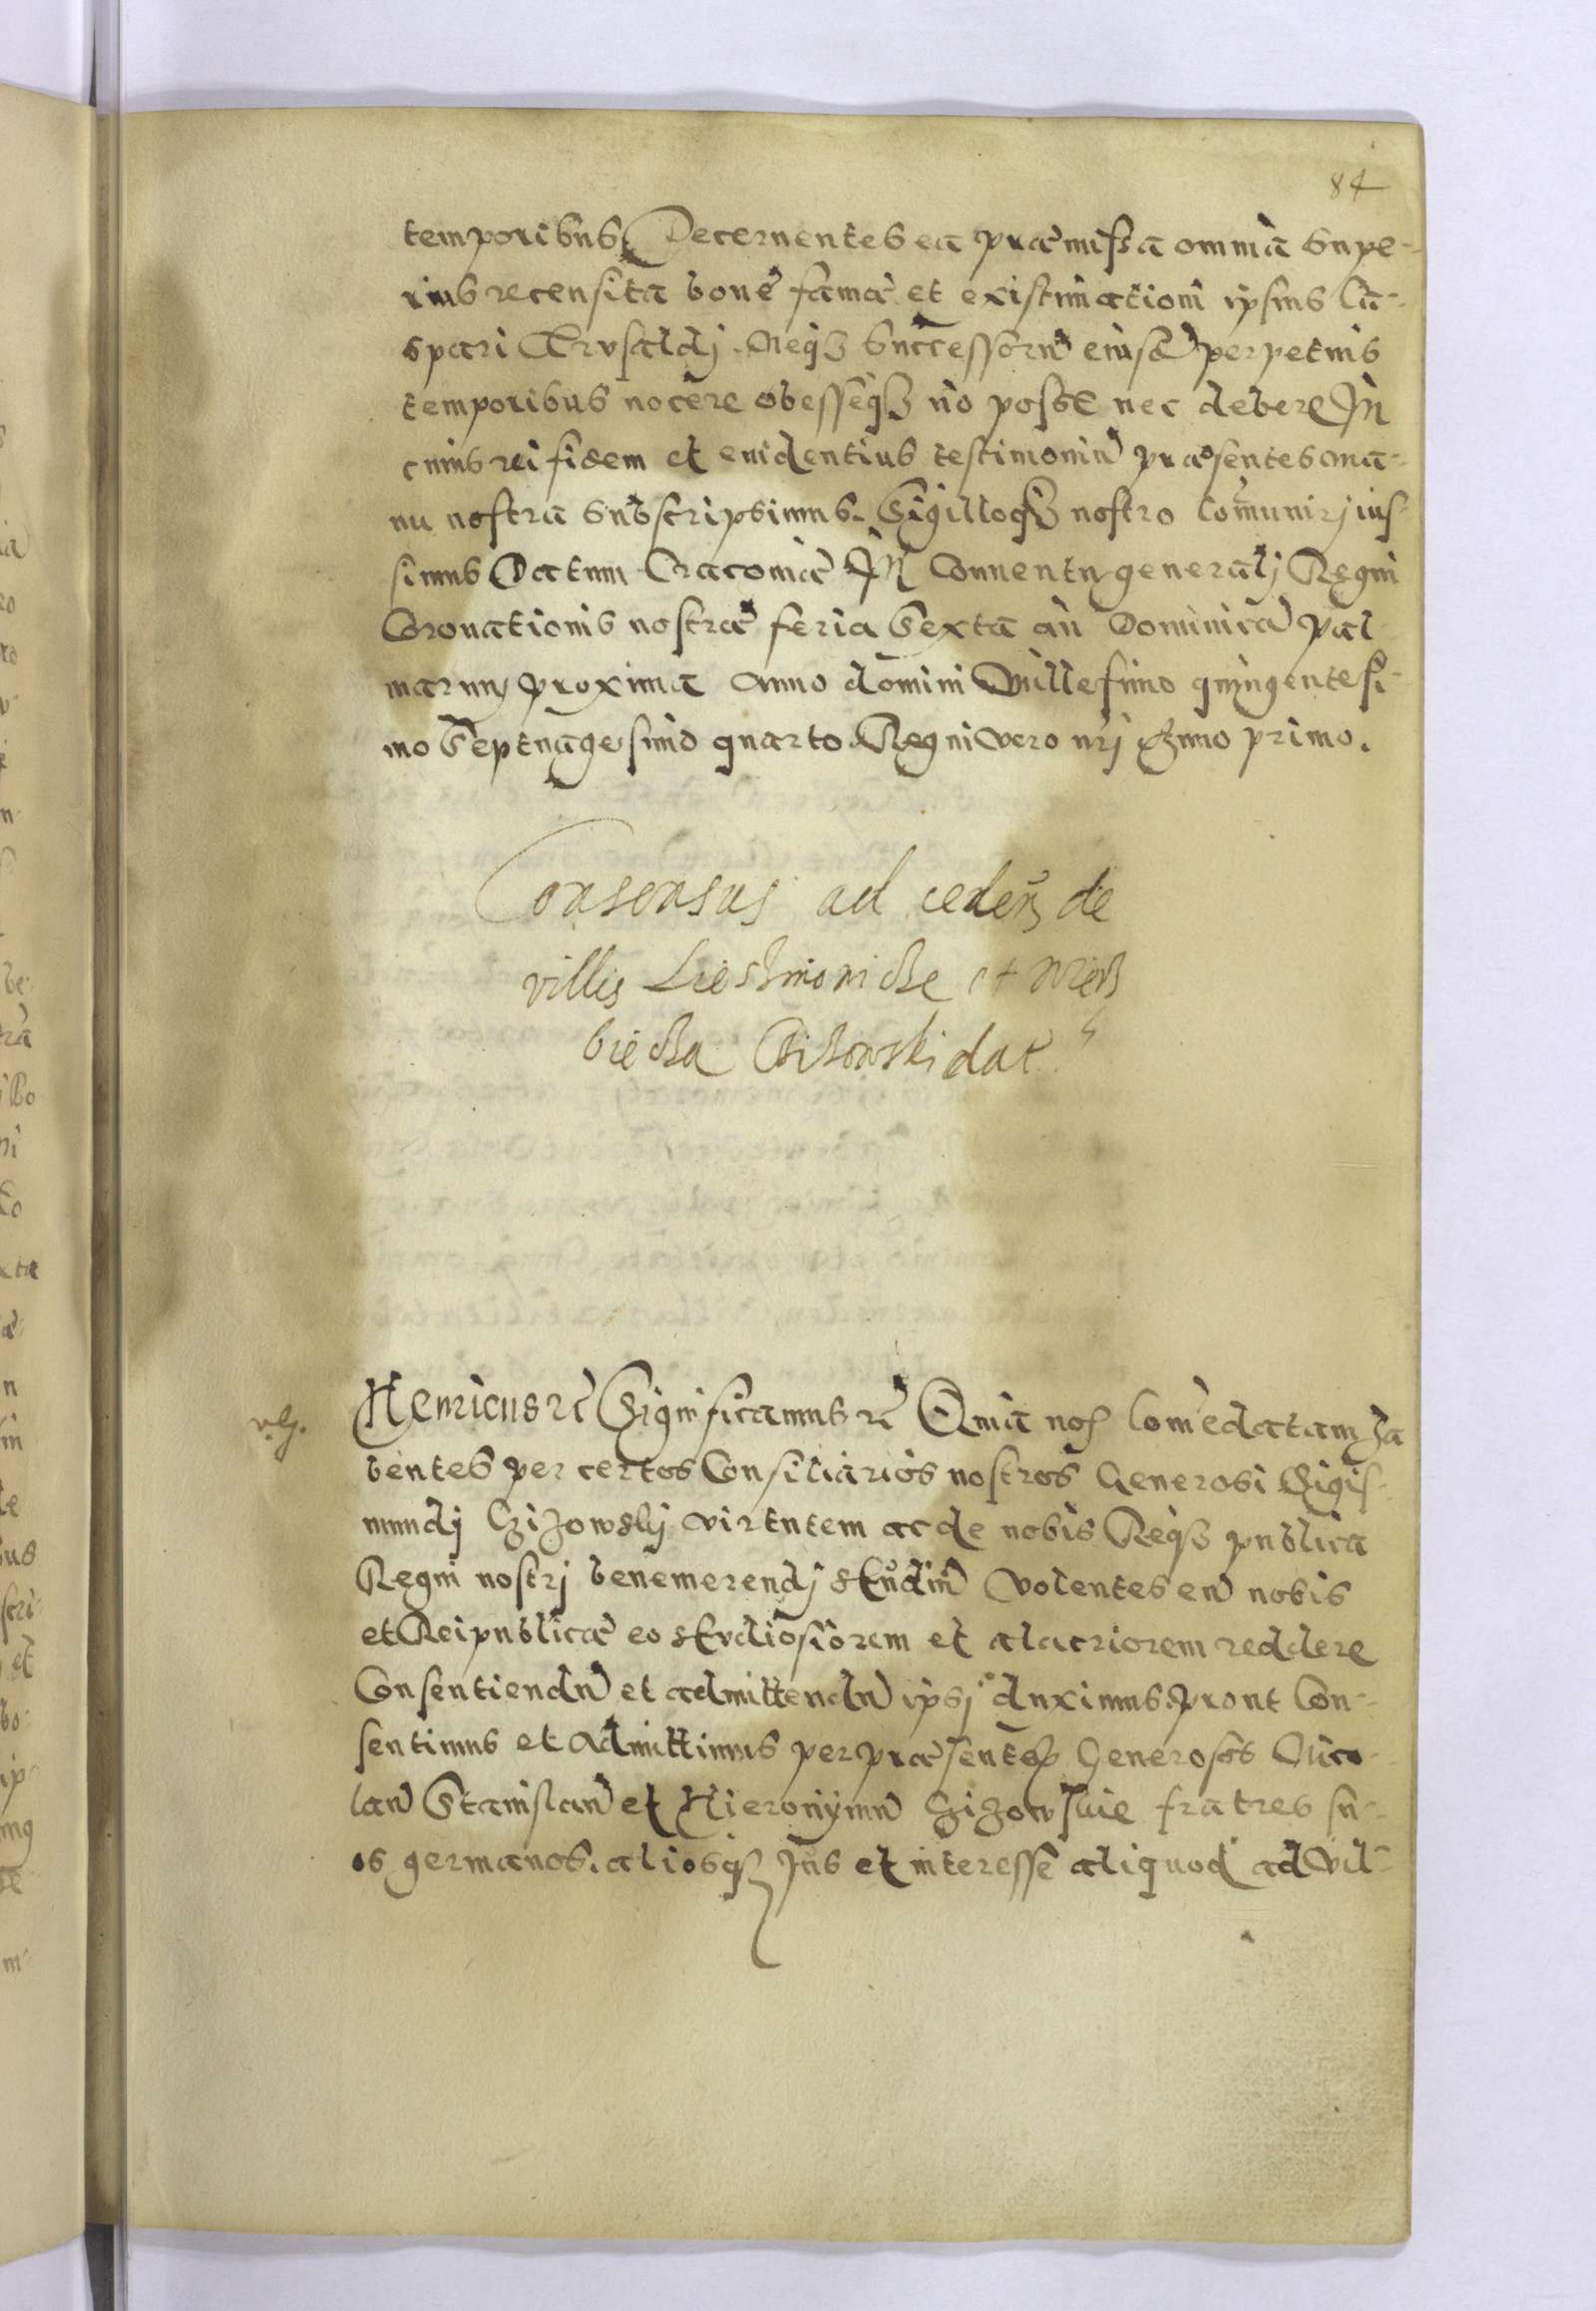 84
temporibus Decernentes ea præmissa omnia supe-
rius recensita bonę famæ et existimationi ipsius Ca-
spari Neqȝ Successorū eiusd perpetuis
temporibus nocere obesseqȝ nō posse nec debere In
cuius rei fidem et euidentius testimoniū præsentes ma-
nu nostra subscripsimus. Sigilloqȝ nostro Co͞munirj ius-
simus Datum Cracouiæ In Conuentu generalj Regni
Coronationis nostræ feria Sexta an̄ Dominicā Pal-
marum proxima Anno domini Millesimo quingentesi-
mo Septuagesimo quarto Regni vero nr̄j Anno primo.
Consensus ad ceden̄ de
villis et
dat
Henricus etc̄ Significamus etc̄ Quia nos Com̄edatam ha
bentes per certos Consiliarios nostros Generosi Sigis-
mundj Czizowskj virtutem ac de nobis Reqȝ publica
Regni nostrj benemerendj studiū volentes eū nobis
et Reipublicæ eo studiosiorem et alacriorem reddere
Consentiendū et admittendū ipsj duximus. prout Con-
sentimus et admittimus per præsentes Generosos Nico-
laū Stanislaū et Hieronymū Czizowskie fratres su-
os germanos. aliosqȝ Jus et interesse aliquod ad vil-